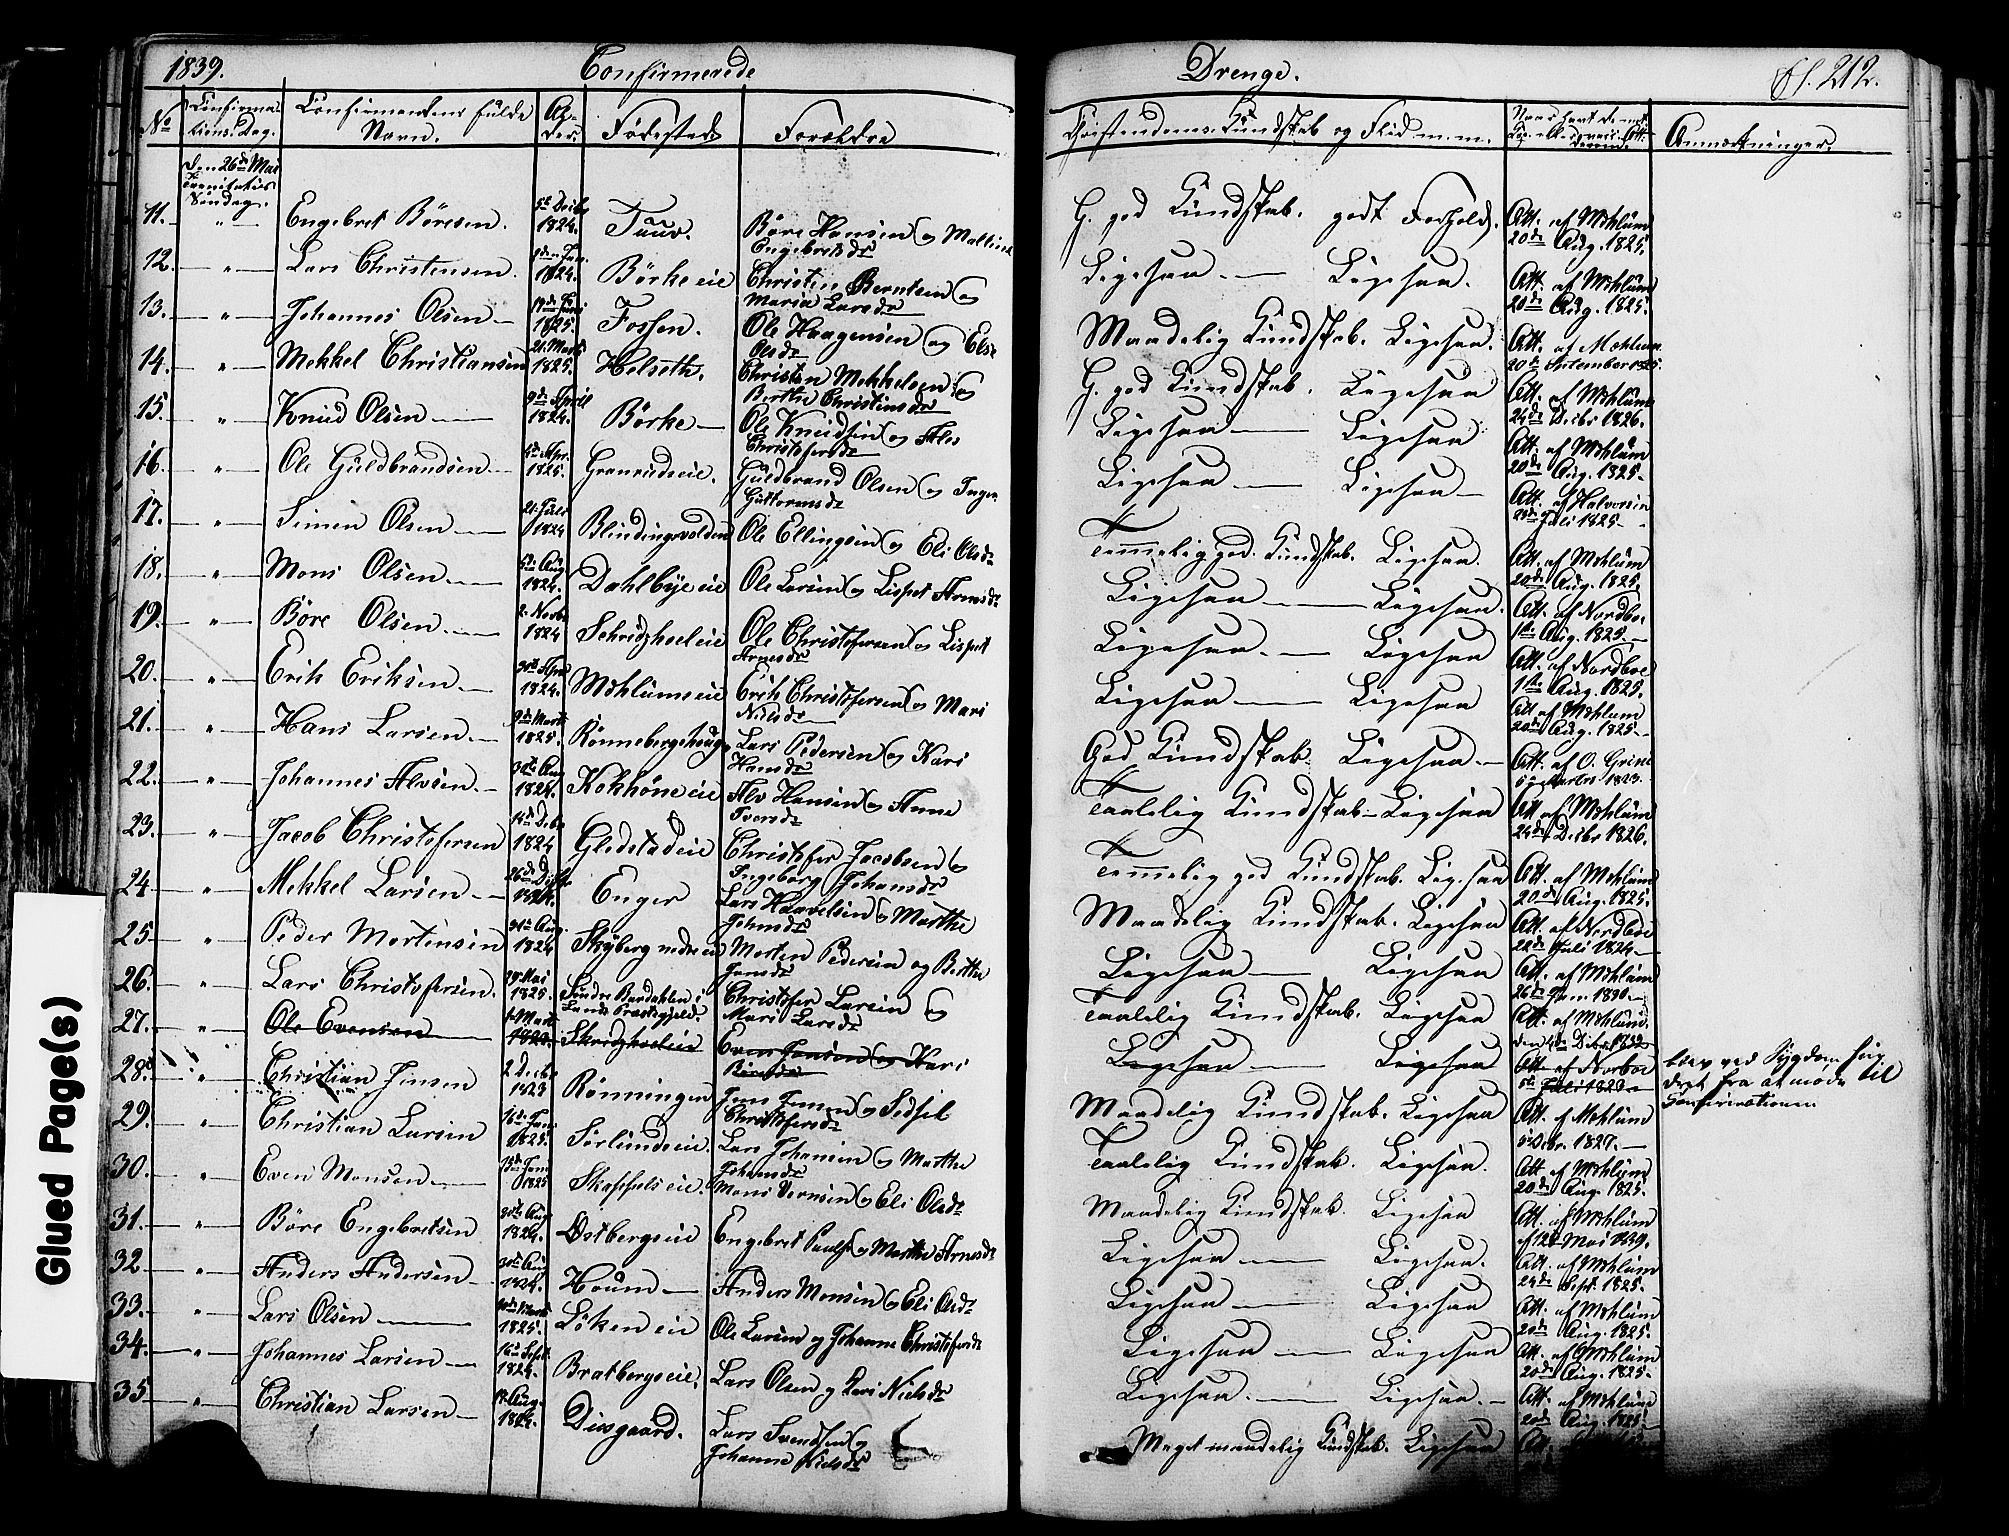 1839.
Confirmerede
Drenge.
212.
No
Confirma-
tions-Dag.
Confirmandens fulde
Navn.
Al-
der.
Fødested
Forældre
Christendoms-Kundskab og Flid m. m.
Anmærkninger.
Den 26de Mai
Trinitatis
Søndag.
11. " Engebret Böresen. 1824. Tuuv. Böre Hansen og
Engebretsdr G. god Kundskab. godt Forhold. Att. af Möhlum
20de Aug. 1825.
12. " Lars Christensen. 1824. Börke eie Christen Berntsen og
Maria Larsdr Ligesaa. Ligesaa. Att. af Möhlum
20de Aug. 1825.
13. " Johannes Olsen 1825. Fossen. Ole Haagensen og Else
Olsdr Maadelig Kundskab. Ligesaa. Att. af Möhlum
20de September 1825.
14. " Mekkel Christiansen 1825. Helseth. Christen Mekkelsen og
Berthe Christensdr G. god Kundskab. Ligesaa Att. af Möhlum
24de Decbr 1826.
15. " Knud Olsen 9de April 1824. Börke Ole Knudsen og
Christofersdr Ligesaa Ligesaa Att. af Möhlum
20de Aug. 1825.
16. " Ole Guldbrandsen 5te Apr. 1825. Granrudseie. Guldbrand Olsen og Inger
Guttormsdr Ligesaa Ligesaa Att. af Halvorsen
Juli 1825
17. " Simen Olsen 21. Juli 1824 Blindingsvolden Ole Ellingsen og Eli Olsdr Temmelig god Kundskab. Ligesaa. Att. af Möhlum
20de Aug. 1825.
18. " Mons Olsen 5te Aug 1824. Dahlbye eie Ole Larsen og Lispet Arnesdr Ligesaa Ligesaa. Att. af Nordboe
1ste Aug. 1825.
19. " Böre Olsen 2. Novbr 1824 Ole Christofersen og Lispet
Arnesdr Ligesaa. Ligesaa Att. af Nordboe
1ste Aug. 1825.
20. " Erik Eriksen 1824. Möhlumseie Erik Christofersen og Mari
Nielsdr Ligesaa Ligesaa Att. af Möhlum
20de Aug. 1825
21. " Hans Larsen 9de Marts 1825. Rönnebergshaug Lars Pedersen og Kari
Hansdr God Kundskab Ligesaa Att. af O. Grise
1823.
22. " Johannes Alvsen 1824. Kokhöne eie Alv Hansen og Anne
Iversdr Taalelig Kundskab Ligesaa Att. af Möhlum
24de Decbr 1826.
23. " Jacob Christofersen 1824 Gledstadeie Christofer Jacobsen og
Ingeborg Johansdr Temmelig god Kundskab. Ligesaa Att. af Möhlum
20de Aug. 1825.
24 " Mekkel Larsen 1824. Enger Lars Haavelsen og Marthe
Johnsdr Maadelig Kundskab. Ligesaa Att. af Nordboe
22de Juli 1824
25 " Peder Mortensen 1824 Skyberg nedre eie Morten Pedersen og Berthe
Jonsdr Ligesaa Ligesaa Att. af Möhlum
26de Jan. 1830.
26. " Lars Christofersen. 1825. Söndre Bardahlen i
Lands Præstegjeld. Christofer Larsen og
Mari Larsdr Taalelig Kundskab. Ligesaa Att. af Möhlum
27. " Ole Evensen Even Jensen og Kari Ligesaa Ligesaa Att. af Norboe
Juli 1823
blev ved Sygdom hin-
dret fra at møde til
Confirmationen
28. " Christian Jensen 2 Decbr 1823 Rönningen Jens Jensen og Sidsel
Christofersdr Maadelig Kundskab. Ligesaa Att. af Möhlum
1827.
29. " Christian Larsen 1825. Sörlundseie. Lars Johansen og Marthe
Johansdr Taalelig Kundskab. Ligesaa. Att. af Möhlum
20de Aug. 1825.
30. " Even Monsen 1825 Skappels eie. Mons Evensen og Eli Olsdr Maadelig Kundskab. Ligesaa Att. af Möhlum
af 12te Mai 1839.
31. " Böre Engebretsen 1824. Östbergseie Engebret Paulsen og Marthe Arnesdr Ligesaa Ligesaa. Att. af Möhlum
24de Sept. 1825.
32 " Anders Andersen 1824. Houm Anders Monsen og Eli Olsdr Ligesaa Ligesaa Att. af Möhlum
20de Aug. 1825.
33. " Lars Olsen 1825. Löken eie Ole Larsen og Johanne Christofersdr Ligesaa Ligesaa Att. af Möhlum
20de Aug. 1825.
34. " Johannes Larsen 16de Sept. 1824. Bratbergseie. Lars Olsen og Kari Nielsdr Ligesaa. Ligesaa. Att. af Möhlum
20de Aug. 1825
35 " Christian Larsen Aug. 1824. Diisgaard. Lars Svendsen og
Johanne Nielsdr Meget maadelig Kundskab. Ligesaa
Glued Page(s)